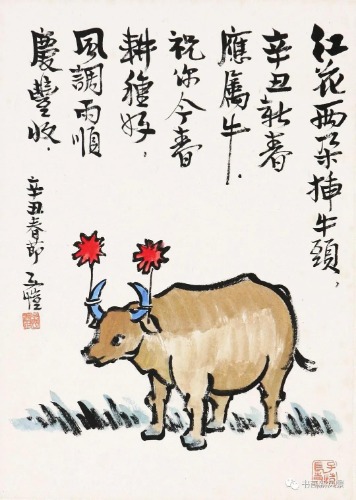 红花两朵插牛頭，
辛丑新春
應屬牛.
祝你今春
耕種好，
風調雨順
慶豐收.
辛丑春節 子愷